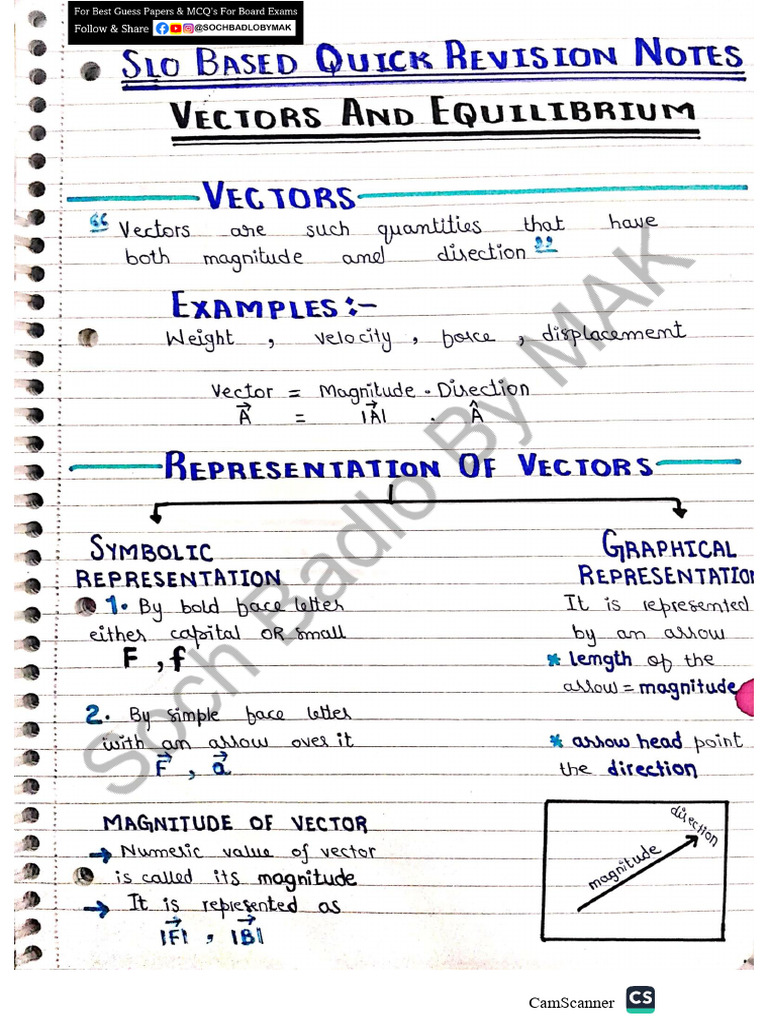 For Best Guess Papers & MCQ's For Board Exams
Follow & Share @SOCHBADLOBYMAK
SLO BASED QUICK REVISION NOTES
VECTORS AND EQUILIBRIUM
VECTORS
“ Vectors are such quantities that have
both magnitude and direction ”
EXAMPLES :-
Weight , velocity , force , displacement
Vector = Magnitude · Direction
A⃗ = |A⃗| · Â
REPRESENTATION OF VECTORS
SYMBOLIC
REPRESENTATION
1. By bold face letter
either capital OR small
F , f
2. By simple face letter
with an arrow over it
F⃗ , a⃗
MAGNITUDE OF VECTOR
→ Numeric value of vector
is called its magnitude
→ It is represented as
|F⃗| , |B⃗|
GRAPHICAL
REPRESENTATION
It is represented
by an arrow
* length of the
arrow = magnitude
* arrow head point
the direction
direction
magnitude
Soch Badlo By MAK
CamScanner CS